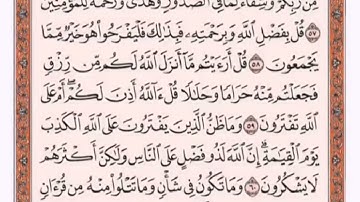 مِّن رَّبِّكُمْ وَشِفَآءٌ لِّمَا فِى ٱلصُّدُورِ وَهُدًى وَرَحْمَةٌ لِّلْمُؤْمِنِينَ
٥٧ قُلْ بِفَضْلِ ٱللَّهِ وَبِرَحْمَتِهِۦ فَبِذَٰلِكَ فَلْيَفْرَحُوا۟ هُوَ خَيْرٌ مِّمَّا
يَجْمَعُونَ ٥٨ قُلْ أَرَءَيْتُم مَّآ أَنزَلَ ٱللَّهُ لَكُم مِّن رِّزْقٍ
فَجَعَلْتُم مِّنْهُ حَرَامًا وَحَلَٰلًا قُلْ ءَآللَّهُ أَذِنَ لَكُمْ ۖ أَمْ عَلَى
ٱللَّهِ تَفْتَرُونَ ٥٩ وَمَا ظَنُّ ٱلَّذِينَ يَفْتَرُونَ عَلَى ٱللَّهِ ٱلْكَذِبَ
يَوْمَ ٱلْقِيَٰمَةِ ۗ إِنَّ ٱللَّهَ لَذُو فَضْلٍ عَلَى ٱلنَّاسِ وَلَٰكِنَّ أَكْثَرَهُمْ
لَا يَشْكُرُونَ ٦٠ وَمَا تَكُونُ فِى شَأْنٍ وَمَا تَتْلُوا۟ مِنْهُ مِن قُرْءَانٍ